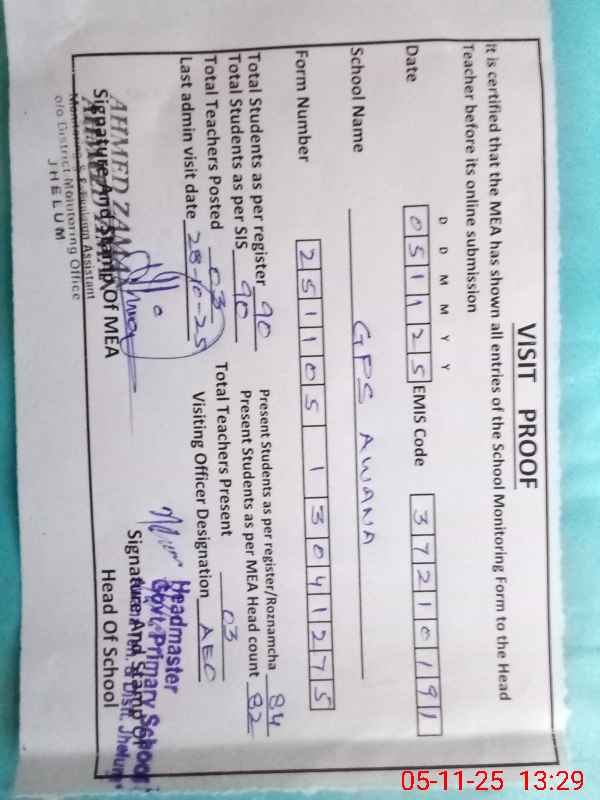 VISIT PROOF
It is certified that the MEA has shown all entries of the School Monitoring Form to the Head
Teacher before its online submission
D D M M Y Y
Date 051125 EMIS Code 37210191
School Name GPS AWANA
Form Number 251105 13041275
Total Students as per register 90 Present Students as per register/Roznamcha 84
Total Students as per SIS 90 Present Students as per MEA Head count 82
Total Teachers Posted 03 Total Teachers Present 03
Last admin visit date 28-10-25 Visiting Officer Designation AEO
AHMED ZAMAN
Signature And Stamp Of MEA
Assistant
o/o District Monitoring Office
JHELUM
Headmaster
Govt. Primary School
Signature And Stamp Of
Distt. Jhelum
Head Of School
05-11-25 13:29